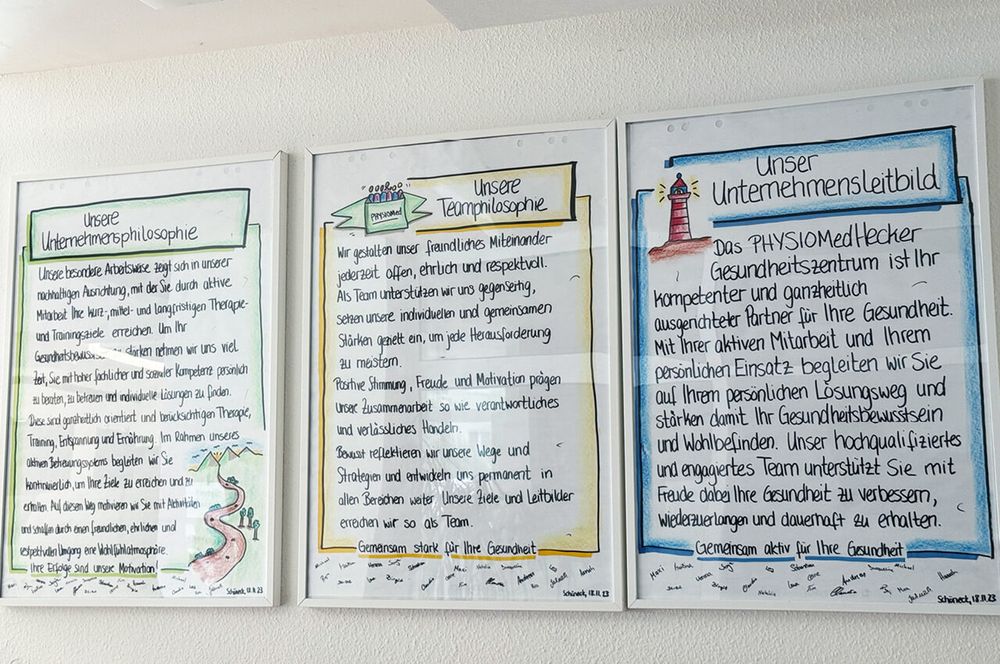 Unsere
Unternehmensphilosophie
Unsere besondere Arbeitsweise zeigt sich in unserer
nachhaltigen Ausrichtung, mit der Sie durch aktive
Mitarbeit Ihre kurz-, mittel- und langfristigen Therapie-
und Trainingsziele erreichen. Um Ihr
Gesundheitsbewusstsein zu stärken nehmen wir uns viel
Zeit, Sie mit hoher fachlicher und sozialer Kompetenz persönlich
zu beraten, zu betreuen und individuelle Lösungen zu finden.
Diese sind ganzheitlich orientiert und berücksichtigen Therapie,
Training, Entspannung und Ernährung. Im Rahmen unseres
aktiven Betreuungsystems begleiten wir Sie
kontinuierlich, um Ihre Ziele zu erreichen und zu
erhalten. Auf diesem Weg motivieren wir Sie mit Aktivitäten
und schaffen durch einen freundlichen, ehrlichen und
respektvollen Umgang eine Wohlfühlatmosphäre.
Ihre Erfolge sind unsere Motivation!
Schöneck, 18.11.23
PHYSIOMed
Unsere
Teamphilosophie
Wir gestalten unser freundliches Miteinander
jederzeit offen, ehrlich und respektvoll.
Als Team unterstützen wir uns gegenseitig,
setzen unsere individuellen und gemeinsamen
Stärken gezielt ein, um jede Herausforderung
zu meistern.
Positive Stimmung, Freude und Motivation prägen
unsere Zusammenarbeit so wie verantwortliches
und verlässliches Handeln.
Bewusst reflektieren wir unsere Wege und
Strategien und entwickeln uns permanent in
allen Bereichen weiter. Unsere Ziele und Leitbilder
erreichen wir so als Team.
Gemeinsam stark für Ihre Gesundheit
Schöneck, 18.11.23
Unser
Unternehmensleitbild
Das PHYSIOMedHecker
Gesundheitszentrum ist Ihr
kompetenter und ganzheitlich
ausgerichteter Partner für Ihre Gesundheit.
Mit Ihrer aktiven Mitarbeit und Ihrem
persönlichen Einsatz begleiten wir Sie
auf Ihrem persönlichen Lösungsweg und
stärken damit Ihr Gesundheitsbewusstsein
und Wohlbefinden. Unser hochqualifiziertes
und engagiertes Team unterstützt Sie mit
Freude dabei Ihre Gesundheit zu verbessern,
wiederzuerlangen und dauerhaft zu erhalten.
Gemeinsam aktiv für Ihre Gesundheit
Schöneck, 18.11.23